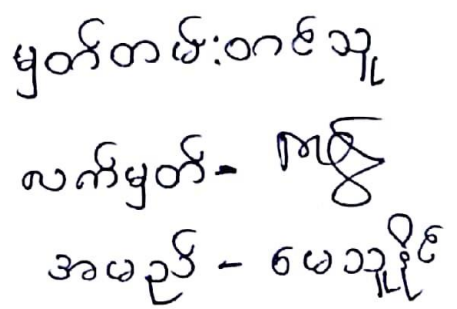 မှတ်တမ်းတင်သူ
လက်မှတ် -
အမည် - မေသူနိုင်